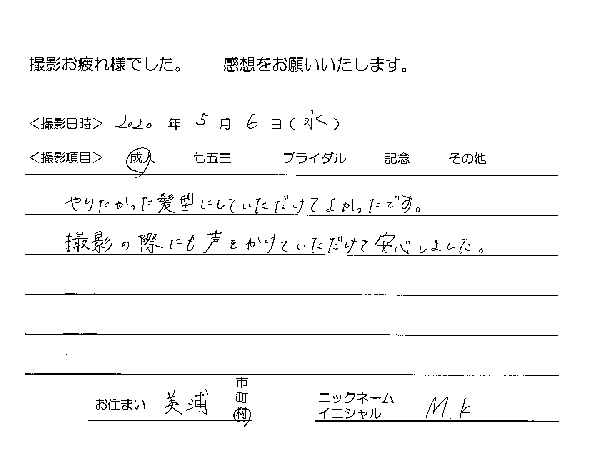 撮影お疲れ様でした。　感想をお願いいたします。
＜撮影日時＞ 2020 年 5 月 6 日（水）
＜撮影項目＞ 成人　七五三　ブライダル　記念　その他
やりたかった髪型にしていただけてよかったです。
撮影の際にも声をかけていただけて安心しました。
お住まい 美浦 市町村
ニックネーム イニシャル M.K